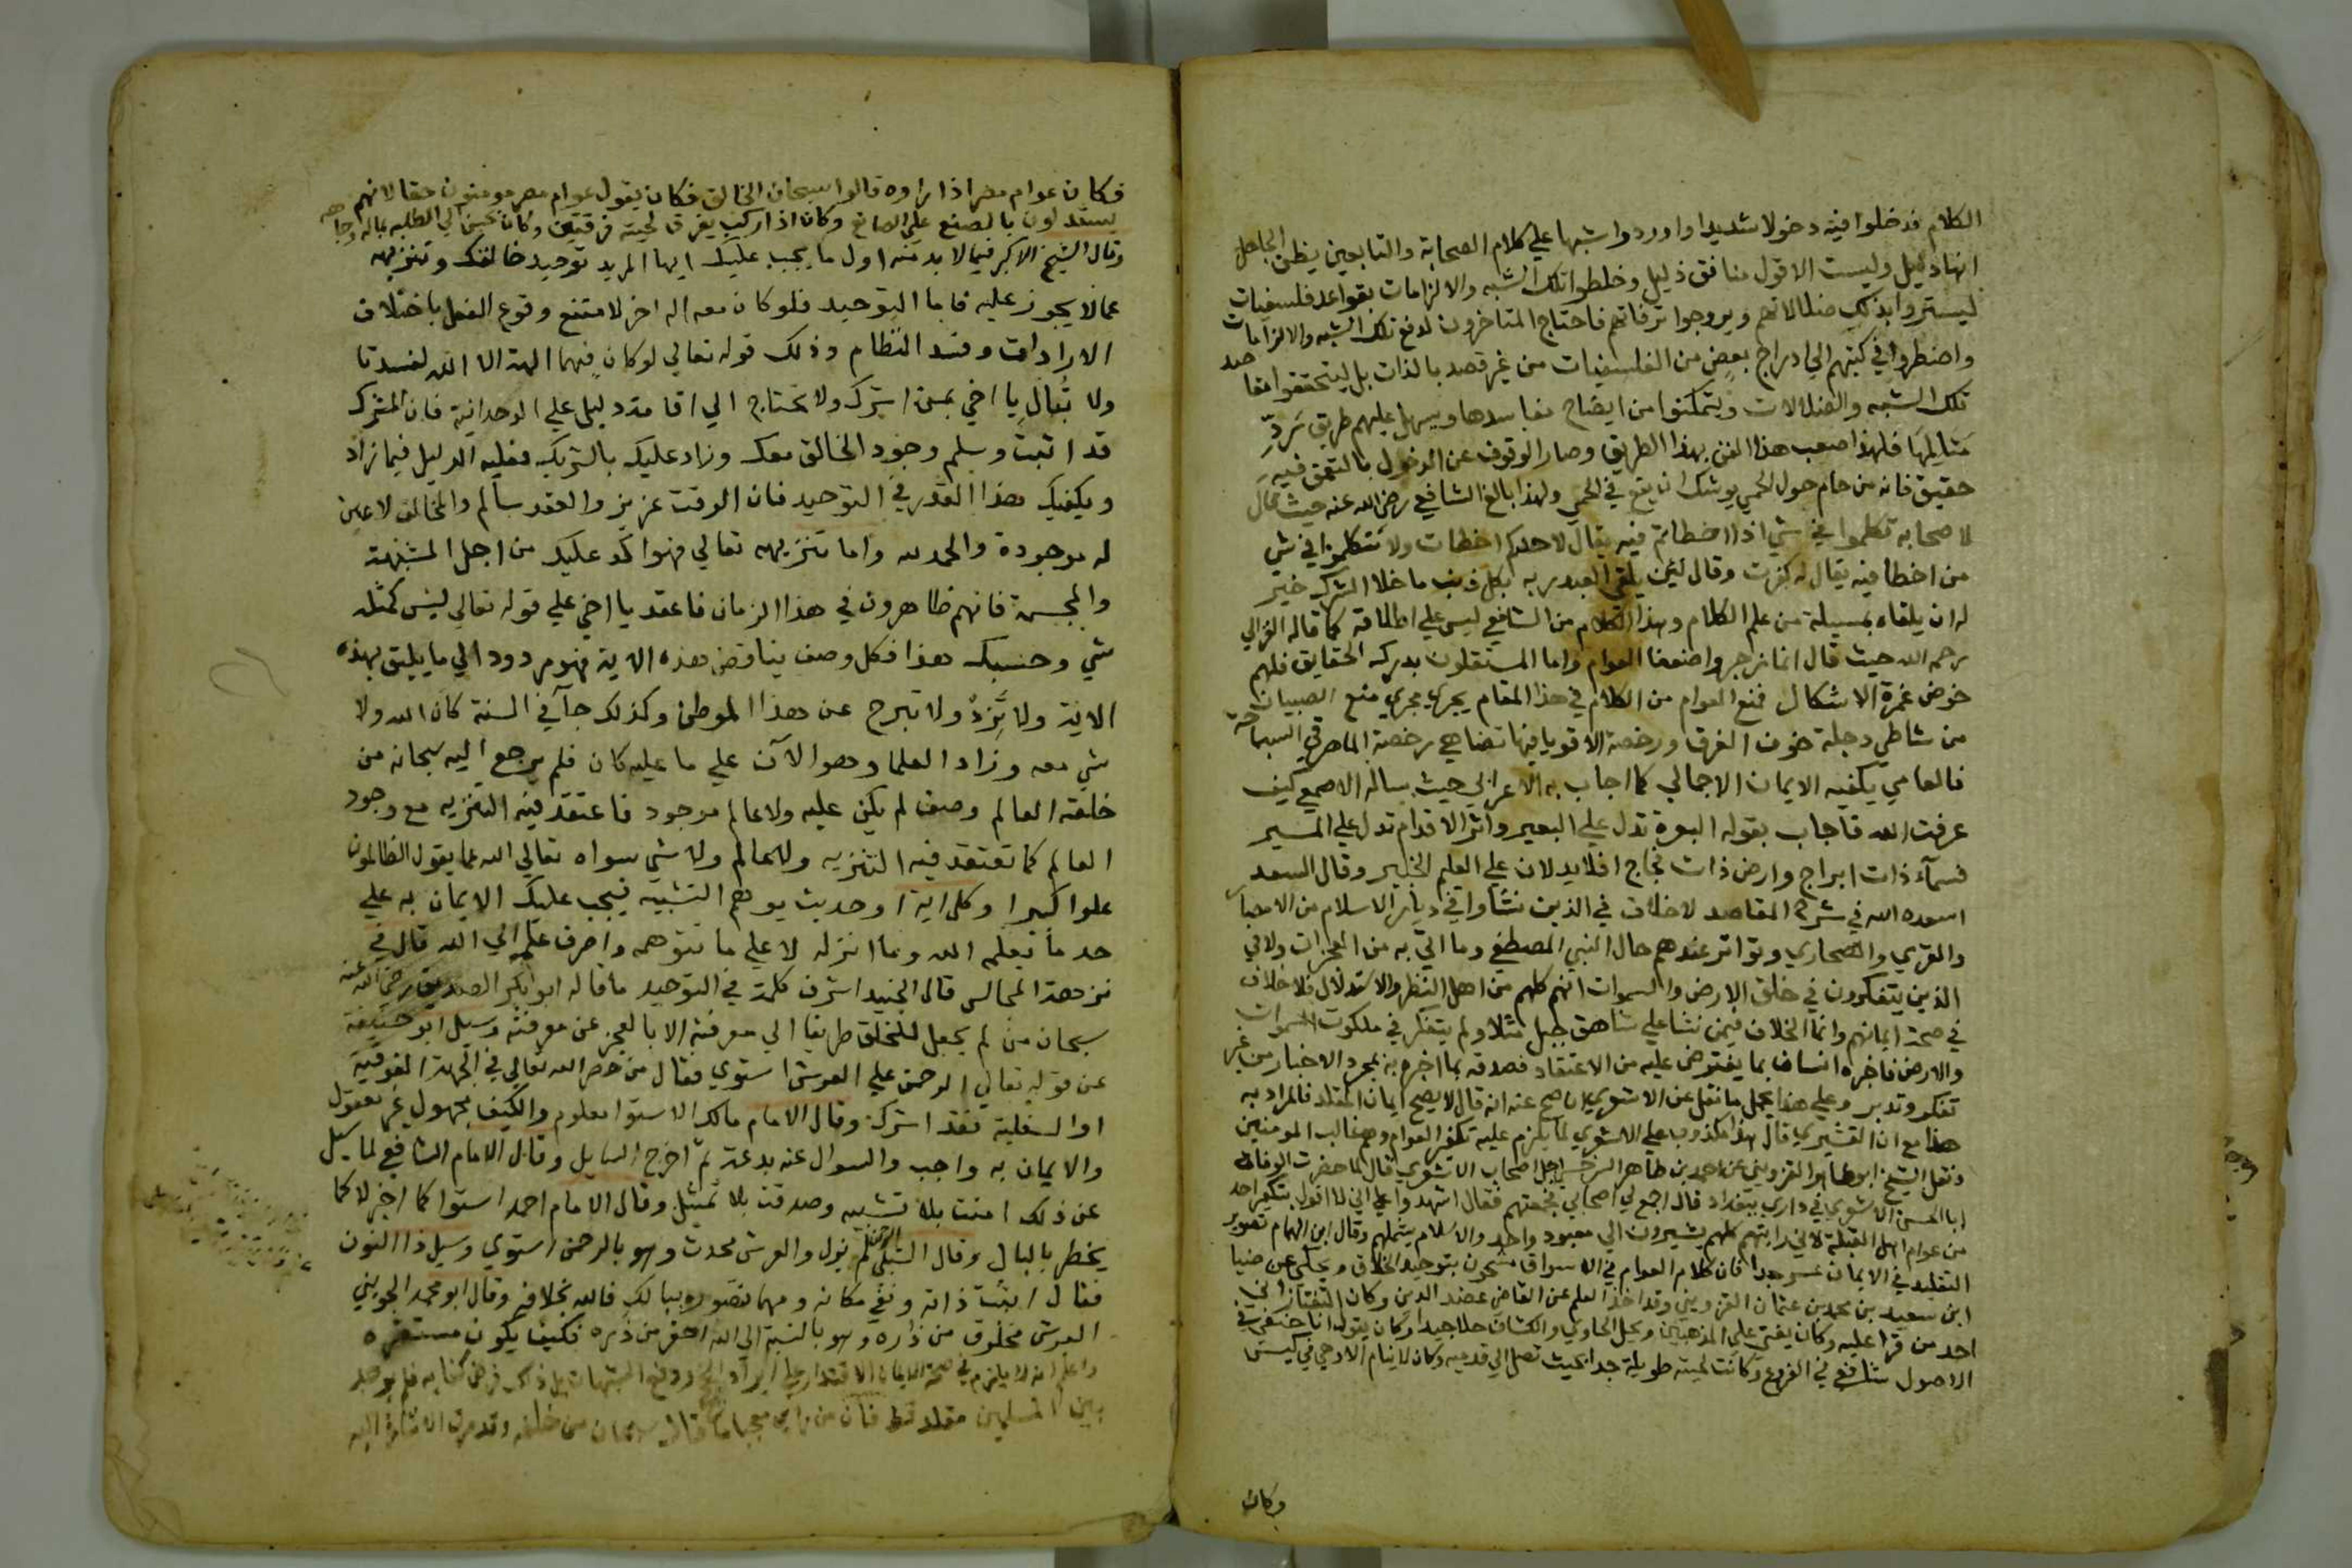 الكلام فدخلوا فيه دخولا شديدا واوردوا شبها علي كلام الصحابة والتابعين يظن الجاهل
انها دليل وليست الا قول منافق ذليل وخلطوا تلك الشبه والالزامات بقواعد فلسفيات
ليستروا بذلك ضلالاتهم ويروجوا ترفاتهم فاحتاج المتاخرون لدفع تلك الشبه والالزامات
واضطروا في كتبهم الي ادراج بعض من الفلسفيات من غير قصد بالذات بل ليتحققوا مقاصد
تلك الشبه والضلالات ويتمكنوا من ايضاح مفاسدها ويسهل عليهم طريق رد
فلهذا صعب هذا الفن بهذا الطريق وصار الوقوف عن الدخول بالتعمق فيه
حقيق فانه من حام حول الحمي يوشك ان يقع في الحمي ولهذا بالغ الشافعي رضي الله عنه حيث قال
لاصحابه تكلموا في شي اذا اخطاتم فيه يقال لاحدكم اخطات ولا تتكلموا في شي
من اخطا فيه يقال له كفرت وقال لئن يلقي العبد ربه بكل ذنب ما خلا الشرك خير
له ان يلقاه بمسيلة من علم الكلام وهذا الكلام من الشافعي ليس علي اطلاقه كما قاله الغزالي
رحمه الله حيث قال انما زجروا ضعفا العوام واما المستقلون بدركه الحقايق فلهم
خوض غمرة الاشكال فمنع العوام من الكلام في هذا المقام يجري مجري منع الصبيان
من شاطي دجلة خوف الغرق ورخصة الاقويا فيها تضاهي رخصة الماهر في السباحة
فالعامي يكفيه الايمان الاجمالي كما اجاب به الاعرابي حيث ساله الاصمعي كيف
عرفت الله فاجاب بقوله البعرة تدل علي البعير واثر الاقدام تدل علي المسير
فسمآء ذات ابراج وارض ذات فجاج افلا يدلان علي العليم الخبير وقال السعد
اسعده الله في شرح المقاصد لا خلاف في الذين نشاوا في ديار الاسلام من الامصار
والقري والصحاري وتواتر عندهم حال النبي المصطفي وما اتي به من المعجزات ولا في
الذين يتفكرون في خلق الارض والسموات انهم كلهم من اهل النظر والاستدلال فلا خلاف
في صحة ايمانهم وانما الخلاف فيمن نشا علي شاهق جبل مثلا ولم يتفكر في ملكوت السموات
والارض فاخبره انسان بما يفترض عليه من الاعتقاد فصدقه بما اخبره به بمجرد الاخبار من غير
تفكر وتدبر وعلي هذا يحمل ما نقل عن الاشعري ان صح عنه انه قال لا يصح ايمان المقلد فالمراد به
هذا مع ان القشيري قال هذا مكذوب علي الاشعري لما يلزم عليه تكفير العوام وهم غالب المومنين
ونقل الشيخ ابو طاهر القزويني عن احمد بن طاهر السرخسي اجل اصحاب الاشعري قال لما حضرت الوفاة
ابا الحسن الاشعري في داري ببغداد قال اجمع لي اصحابي فجمعتهم فقال اشهدوا علي اني لا اقول بتكفير احد
من عوام اهل القبلة لاني رايتهم كلهم يشيرون الي معبود واحد والاسلام يشملهم وقال ابن الهمام تصوير
التقليد في الايمان عسر جدا فان كلام العوام في الاسواق مشحون بتوحيد الخلاق ويحكي عن ضيا
ابن سعيد بن محمد بن عثمان القزويني وقد اخذ العلم عن القاضي عضد الدين وكان التفتازاني
احد من قرا عليه وكان يفتي علي المذهبين ويحل الحاوي والكشاف حلا جيدا وكان يقول انا حنفي في
الاصول شافعي في الفروع وكانت لحيته طويلة جدا بحيث تصل الي قدميه وكان لا ينام الا وهي في كيس
وكان
فكان عوام مصر اذا راوه قالوا سبحان الخالق فكان يقول عوام مصر مومنون حقا لانهم
يستدلون بالصنع علي الصانع وكان اذا ركب يفرق لحيته فرقتين وكان يحسن الي الطلبه بماله وجاهه
وقال الشيخ الاكبر فيما لا بد منه اول ما يجب عليك ايها المريد توحيد خالقك وتنزيهه
عما لا يجوز عليه فاما التوحيد فلو كان معه اله اخر لامتنع وقوع الفعل باختلاف
الارادات وفسد النظام وذلك قوله تعالي لو كان فيهما الهة الا الله لفسدتا
ولا تبال يا اخي بمن اشرك ولا تحتاج الي اقامة دليل علي الوحدانية فان المشرك
قد اثبت وسلم وجود الخالق معك وزاد عليك بالشريك فعليه الدليل فيما زاد
ويكفيك هذا القدر في التوحيد فان الوقت عزيز والعقد سالم والمخالف لا عين
له موجودة والحمد لله واما تنزيهه تعالي فهو اكد عليك من اجل المشبهة
والمجسمة فانهم ظاهرون في هذا الزمان فاعقد يا اخي علي قوله تعالي ليس كمثله
شي وحسبك هذا فكل وصف يناقض هذه الاية فهو مردود الي ما يليق بهذه
الاية ولا تزد ولا تبرح عن هذا الموطن وكذلك جآ في السنة كان الله ولا
شي معه وزاد العلما وهو الآن علي ما عليه كان فلم يرجع اليه سبحانه من
خلقه العالم وصف لم يكن عليه ولا عالم موجود فاعتقد فيه التنزيه مع وجود
العالم كما تعتقد فيه التنزيه ولا عالم ولا شي سواه تعالي الله عما يقول الظالمون
علوا كبيرا وكل اية او حديث يوهم التشبيه فيجب عليك الايمان به علي
حد ما يعلمه الله وما انزله لا علي ما تتوهمه واصرف علمه الي الله قال في
نزهة المجالس قال الجنيد اشرف كلمة في التوحيد ما قاله ابو بكر الصديق رضي الله عنه
سبحان من لم يجعل للخلق طريقا الي معرفته الا بالعجز عن معرفته وسيل ابو حنيفة
عن قوله تعالي الرحمن علي العرش استوي فقال من حصر الله تعالي في الجهة الفوقية
او السفلية فقد اشرك وقال الامام مالك الاستوا معلوم والكيف مجهول غير معقول
والايمان به واجب والسوال عنه بدعة ثم اخرج السايل وقال الامام الشافعي لما سيل
عن ذلك امنت بلا تشبيه وصدقت بلا تمثيل وقال الامام احمد استوا كما اخبر لا كما
يخطر بالبال وقال الشبلي الرحمن لم يزل والعرش محدث وهو بالرحمن استوي وسيل ذا النون
فقال اثبت ذاته ونفي مكانه ومهما تصور ببالك فالله بخلافه وقال ابو محمد الجويني
العرش مخلوق من ذره وهو بالنسبة الي الله احقر من ذره فكيف يكون مستقره
واعلم انه لا يلزم في صحة الايمان الاقتدار علي ايراد الحجج ودفع الشبهات بل ذلك فرض كفايه فلم يوجد
بين المسلمين مقلد قط فان من راي عجبا قال سبحان من خلقه وقد مرت الاشارة اليه